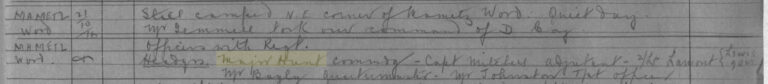 MAMETZ 21 Still camped N.E corner of Mametz Wood. Quiet day.
WOOD Mr Gemmell took over command of D Coy
MAMETZ Officers with Regt.
WOOD. Hdqrs Major Hunt commdg - Capt Mitchell adjutant - 2/Lt Lamont { Lewis guns
Mr Bayly Quartermaster - Mr Johnston Tpt officer